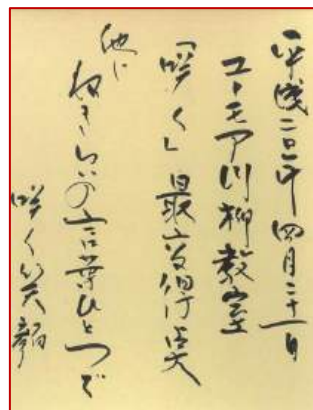 平成二〇年四月二十一日
ユーモア川柳教室
「咲く」最高得点
ねぎらいの言葉ひとつで
咲く笑顔